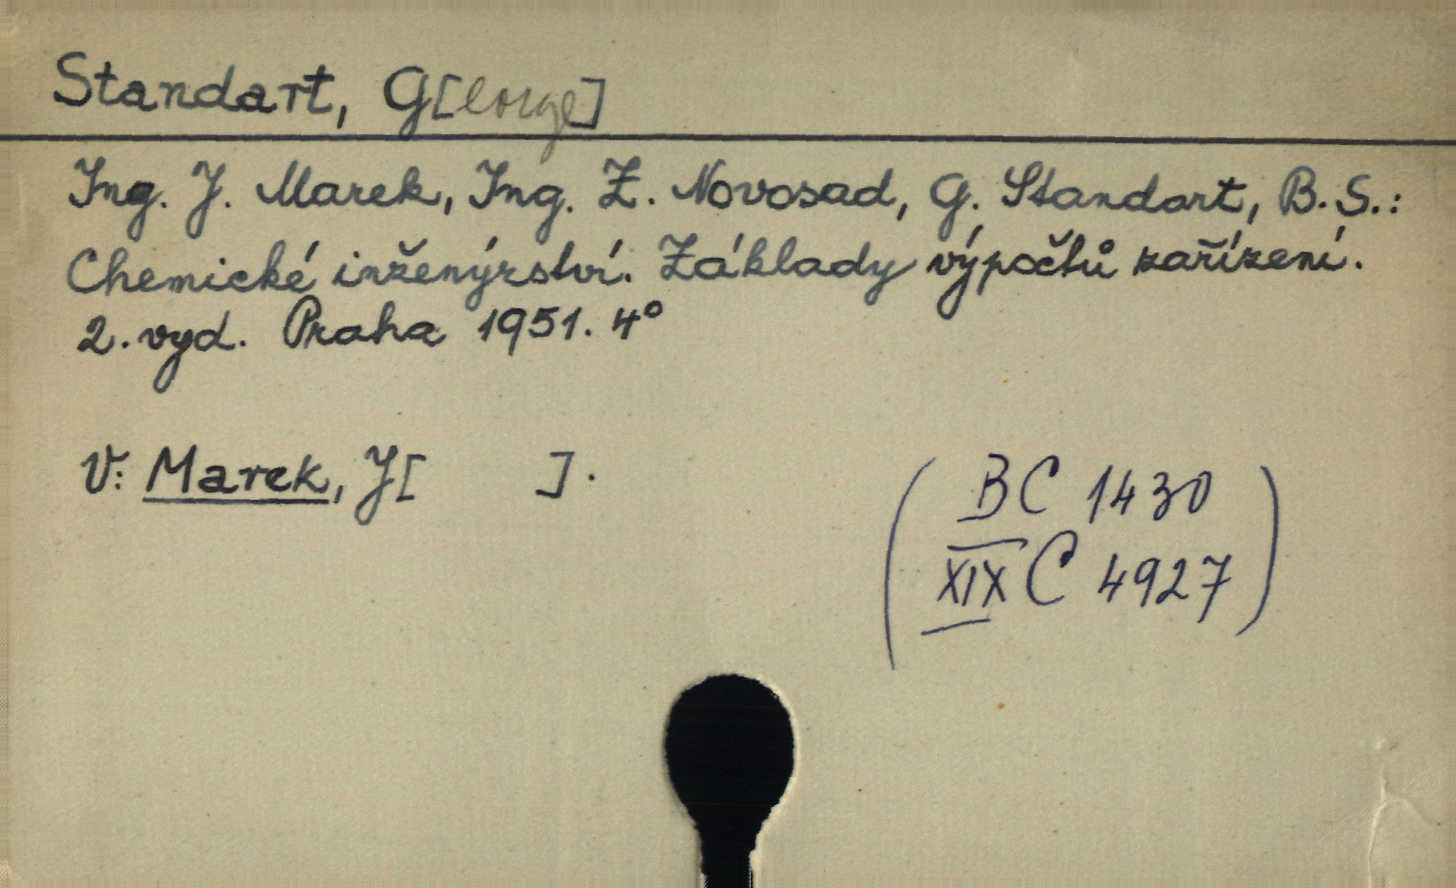 Standart, G[eorge]
Ing. J. Marek, Ing. Z. Novosad, G. Standart, B. S.:
Chemické inženýrství. Základy výpočtů zařízení.
2. vyd. Praha 1951. 4°
V: Marek, J[ ].
(BC 1430
XIX C 4927)